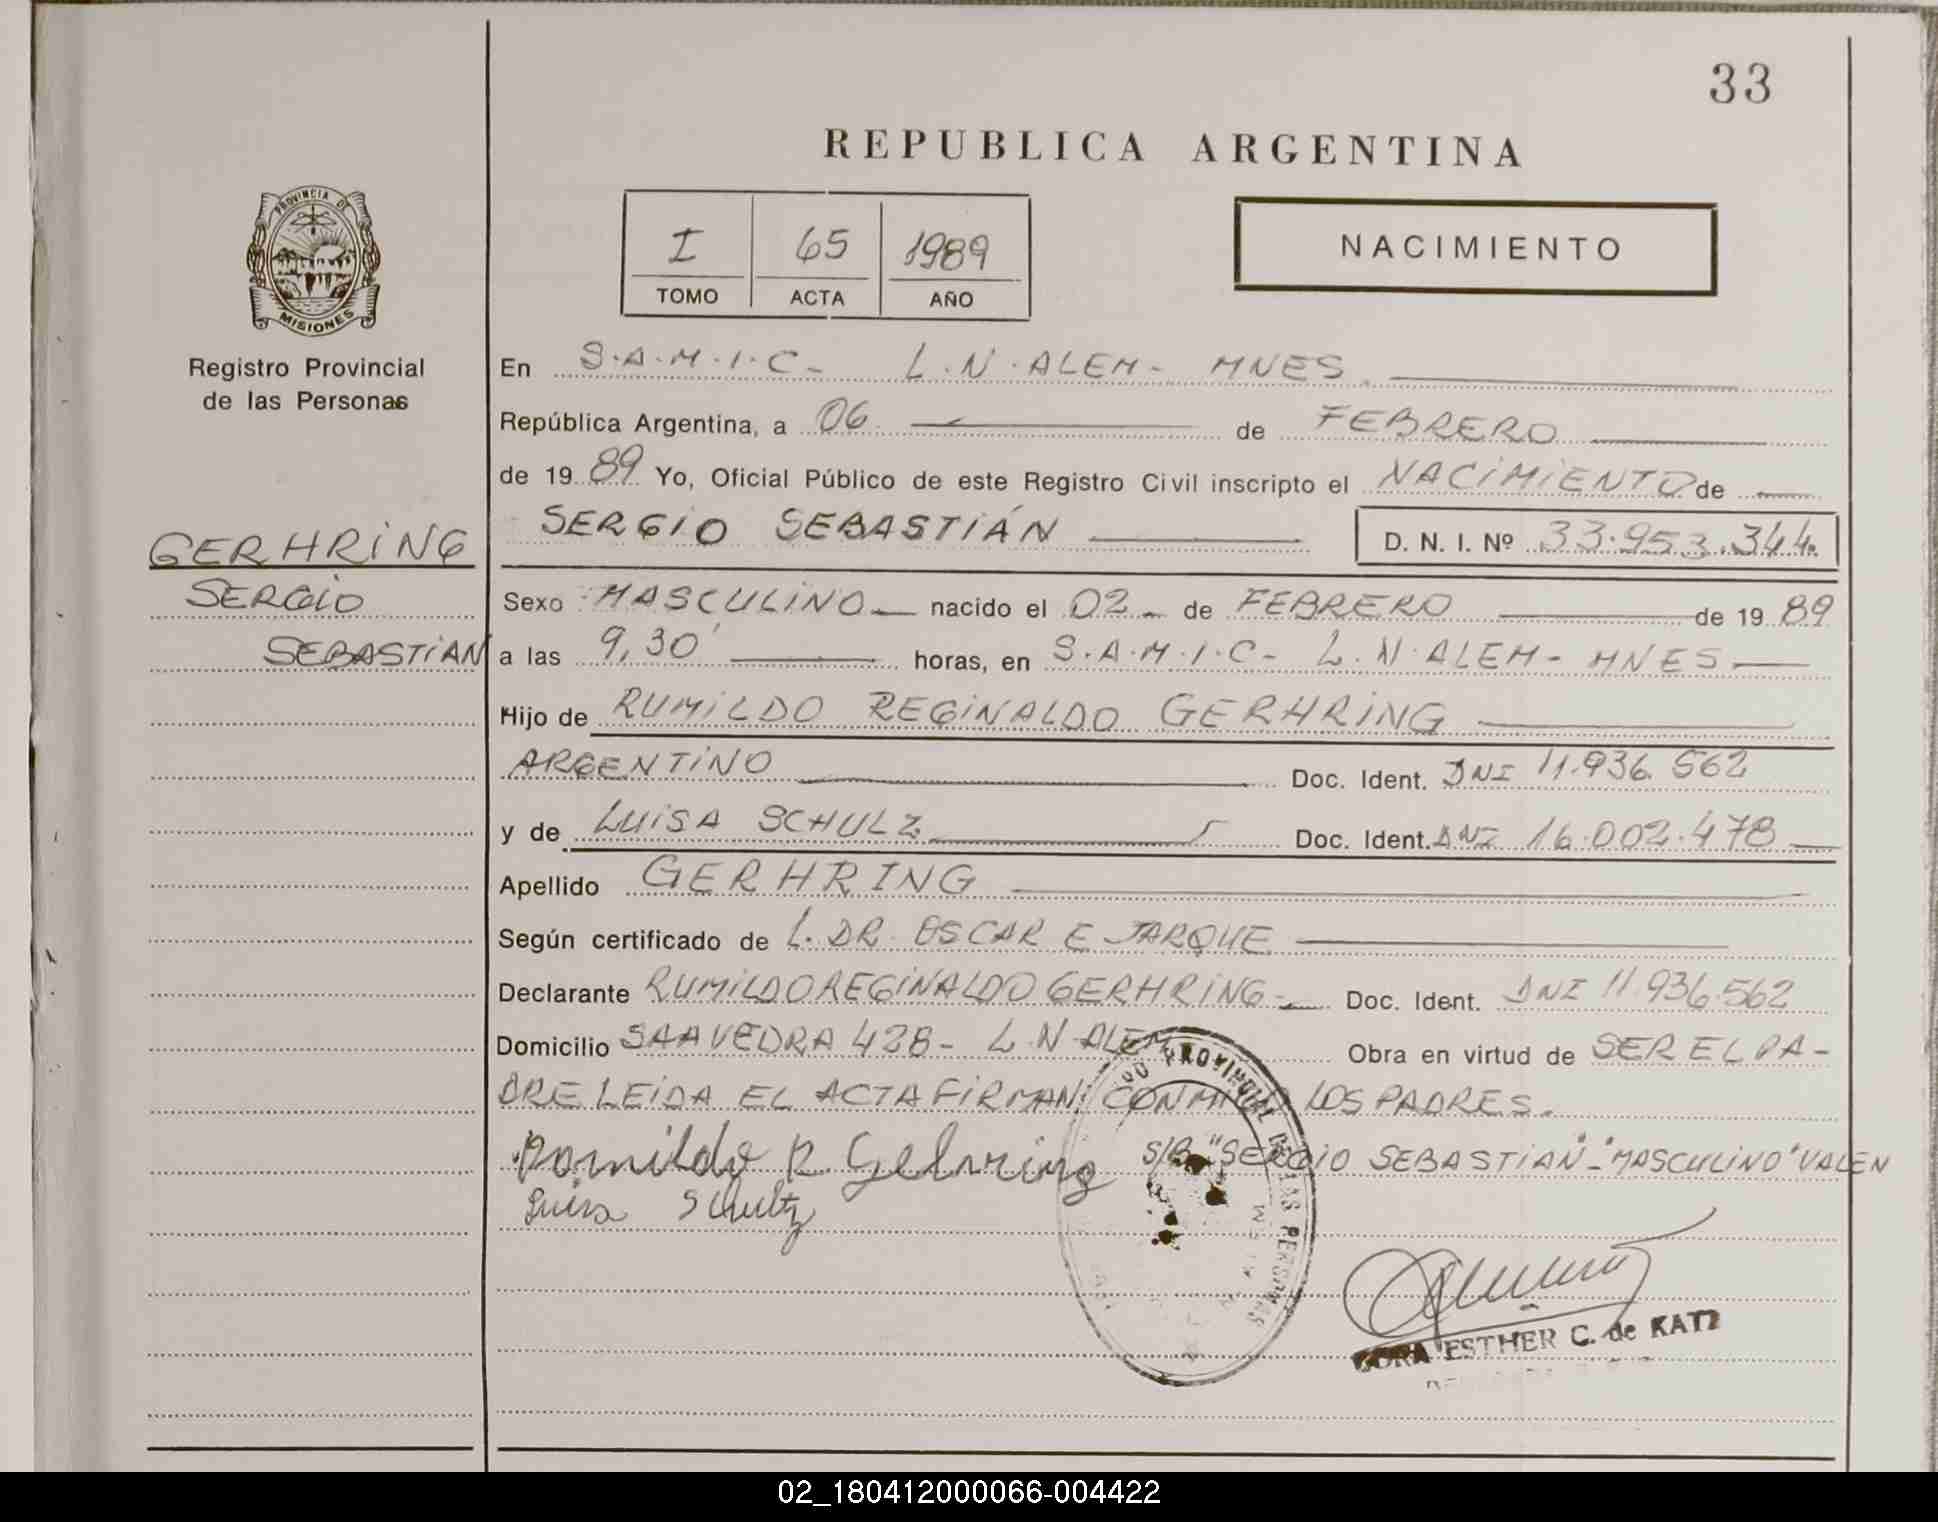 33
REPUBLICA ARGENTINA
PROVINCIA DE
MISIONES
Registro Provincial
de las Personas
I 65 1989
TOMO ACTA AÑO
NACIMIENTO
GERHRING
SERGIO
SEBASTIAN
En S.A.M.I.C- L.N.ALEM- MNES.
República Argentina, a 06 de FEBRERO
de 1989 Yo, Oficial Público de este Registro Civil inscripto el NACIMIENTO de
SERGIO SEBASTIÁN D. N. I. Nº 33.953.344.
Sexo MASCULINO nacido el 02 de FEBRERO de 1989
a las 9,30' horas, en S.A.M.I.C- L.N.ALEM- MNES
Hijo de RUMILDO REGINALDO GERHRING
ARGENTINO Doc. Ident. DNI 11.936.562
y de LUISA SCHULZ Doc. Ident. DNI 16.002.478
Apellido GERHRING
Según certificado de L. DR. OSCAR E JARQUE
Declarante RUMILDO REGINALDO GERHRING- Doc. Ident. DNI 11.936.562
Domicilio SAAVEDRA 428- L.N.ALEM Obra en virtud de SER EL PA-
DRE LEIDA EL ACTA FIRMAN CONMIGO LOS PADRES.
Romildo R. Gehring S/B "SERGIO SEBASTIAN"-"MASCULINO" VALEN
Luisa Schultz
PROVINCIAL DE LAS PERSONAS
DORA ESTHER C. de KATZ
02_180412000066-004422